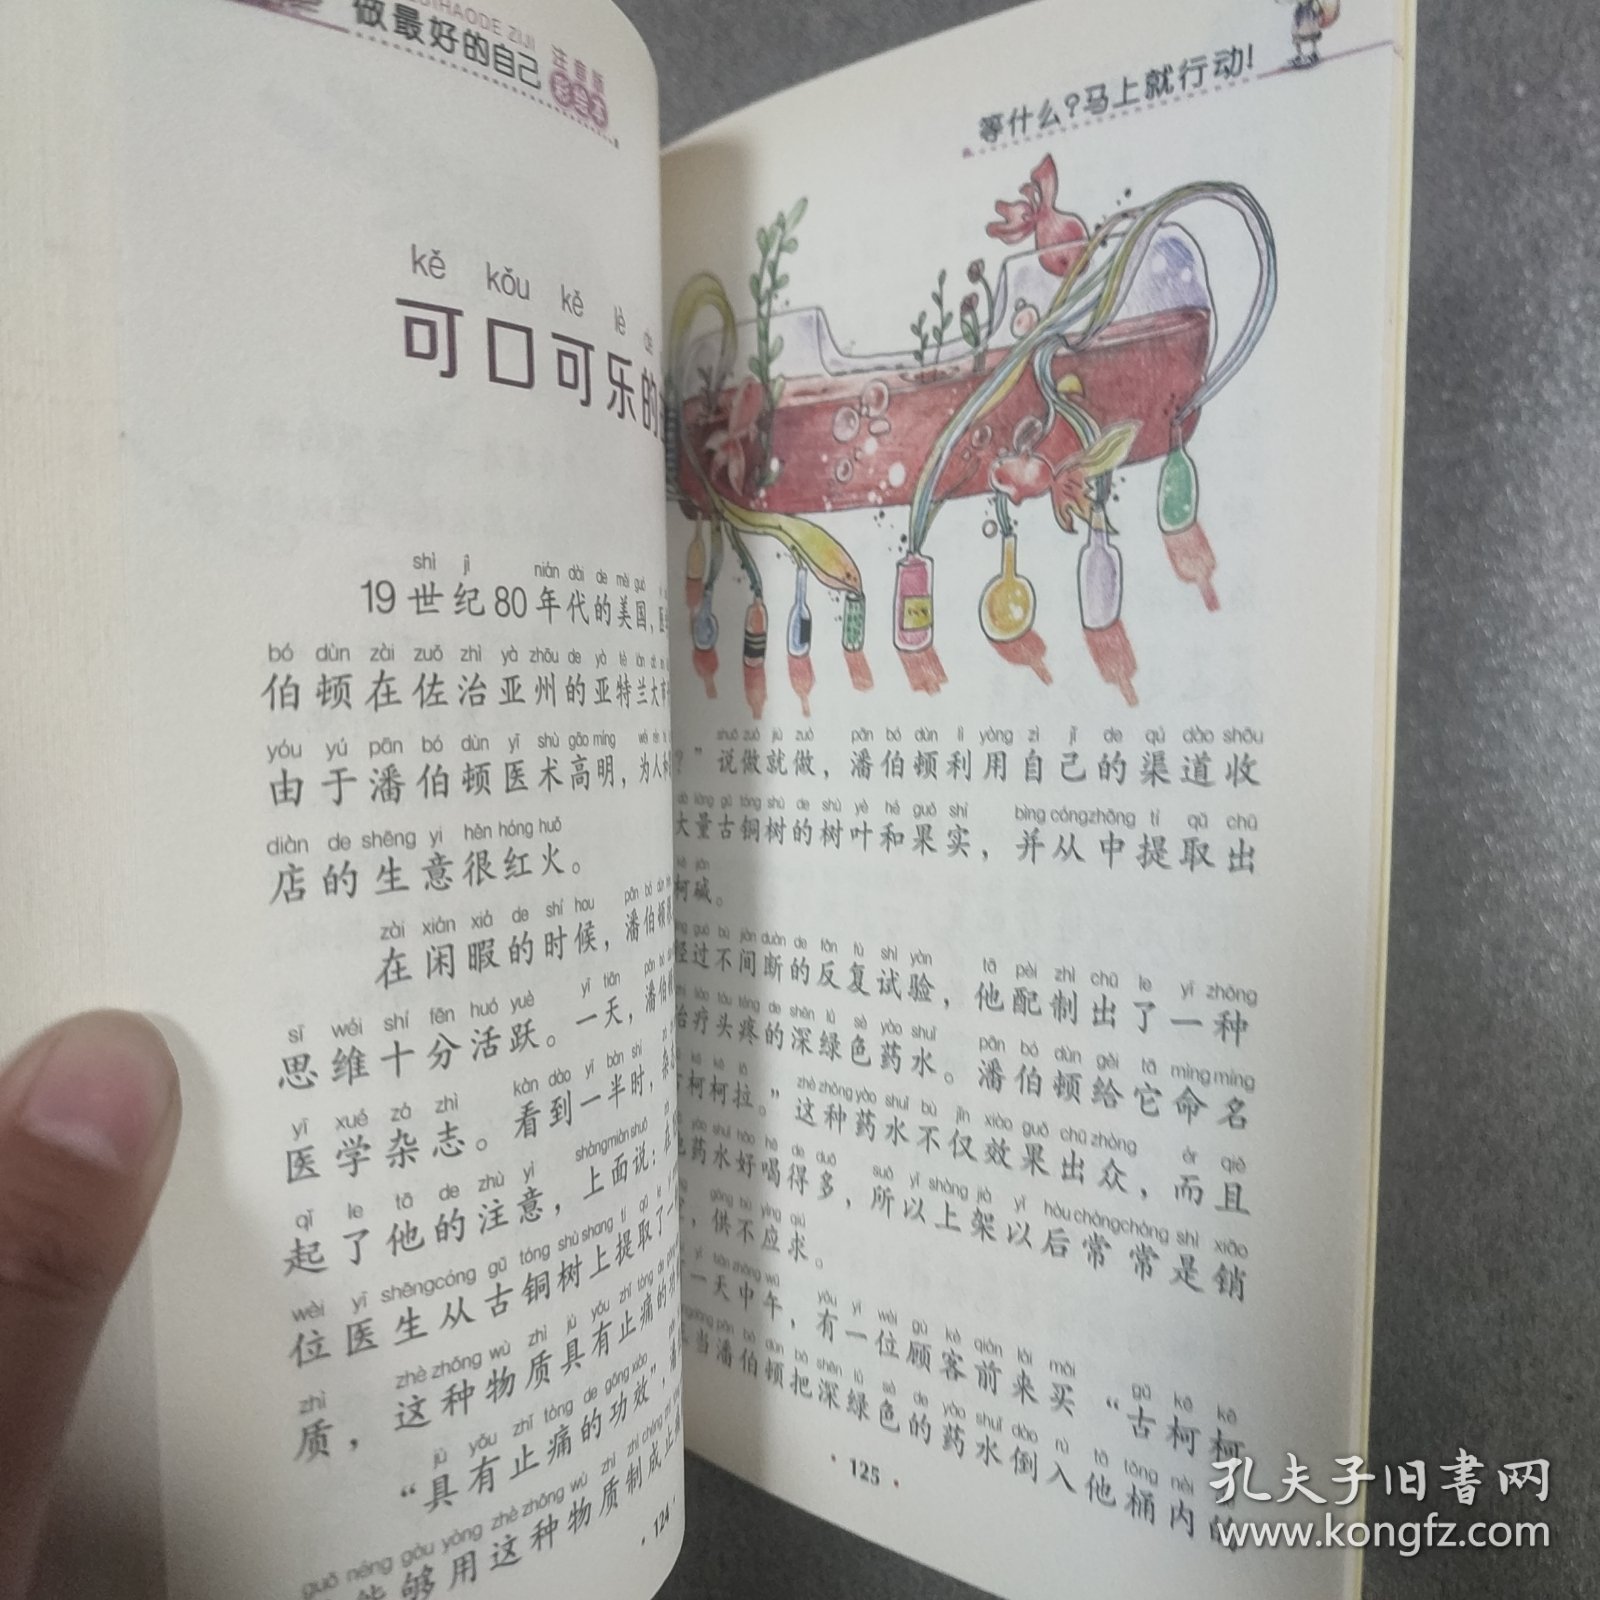 IHAODE ZIJI
做最好的自己
注音版
kě kǒu kě lè
可口可乐的
shì jì nián dài de měi guó
19世纪80年代的美国，医
bó dùn zài zuǒ zhì yà zhōu de yà tè lán dà
伯顿在佐治亚州的亚特兰大市
yóu yú pān bó dùn yī shù gāo míng
由于潘伯顿医术高明，为人
diàn de shēng yi hěn hóng huǒ
店的生意很红火。
zài xián xiá de shí hou pān bó dùn
在闲暇的时候，潘伯顿
sī wéi shí fēn huó yuè yì tiān pān bó dùn
思维十分活跃。一天，潘伯顿
yī xué zá zhì kàn dào yí bàn shí
医学杂志。看到一半时，
qǐ le tā de zhù yì shàngmiàn shuō
起了他的注意，上面说：在
wèi yī shēngcóng gǔ tóng shù shang tí qǔ
位医生从古铜树上提取了一
zhì zhè zhǒng wù zhì jù yǒu zhǐ tòng de
质，这种物质具有止痛的功
jù yǒu zhǐ tòng de gōng xiào
“具有止痛的功效”，
guǒ néng gòu yòng zhè zhǒng wù zhì zhì chéng
能够用这种物质制成止痛
· 124 ·
等什么？马上就行动！
shuō zuò jiù zuò pān bó dùn lì yòng zì jǐ de qú dào shōu
？”说做就做，潘伯顿利用自己的渠道收
dà liàng gǔ tóng shù de shù yè hé guǒ shí bìng cóngzhōng tí qǔ chū
大量古铜树的树叶和果实，并从中提取出
kē jiǎn
柯碱。
guò bú jiàn duàn de fǎn fù shì yàn tā pèi zhì chū le yì zhǒng
经过不间断的反复试验，他配制出了一种
liáo tóu téng de shēn lǜ sè yào shuǐ pān bó dùn gěi tā mìng míng
治疗头疼的深绿色药水。潘伯顿给它命名
kē kē lā zhè zhǒng yào shuǐ bù jǐn xiào guǒ chū zhòng ér qiě
古柯柯拉。”这种药水不仅效果出众，而且
yào shuǐ hǎo hē de duō suǒ yǐ shàng jià yǐ hòu chángcháng shì xiāo
药水好喝得多，所以上架以后常常是销
gōng bú yìng qiú
，供不应求。
yì tiān zhōng wǔ yǒu yí wèi gù kè qián lái mǎi gǔ kē kē
一天中午，有一位顾客前来买“古柯柯
dāng pān bó dùn bǎ shēn lǜ sè de yào shuǐ dào rù tā tǒng nèi
当潘伯顿把深绿色的药水倒入他桶内的
· 125 ·
孔夫子旧书网
www.kongfz.com